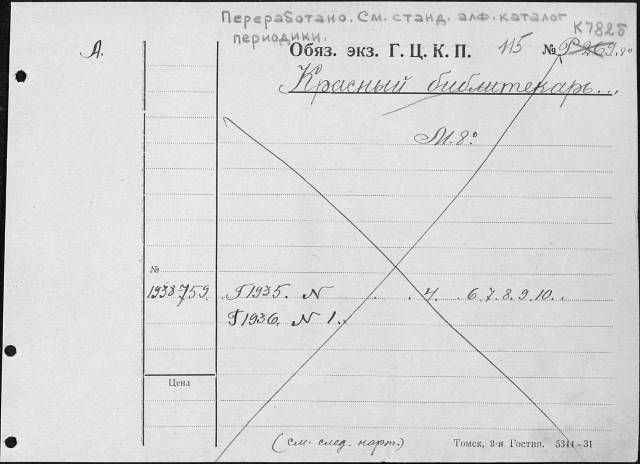 Переработано. См. станд. алф. каталог
периодики.
К782б
А.
Обяз. экз. Г. Ц. К. П. 115 № 8°
Красный библиотекарь...
М. 8°
№
759. Г 1935. N . . 4. 6. 7. 8. 9. 10. .
Г 1936. N 1. .
Цена
(см. след. карт.)
Томск, 3-я Гостип. 5344-31